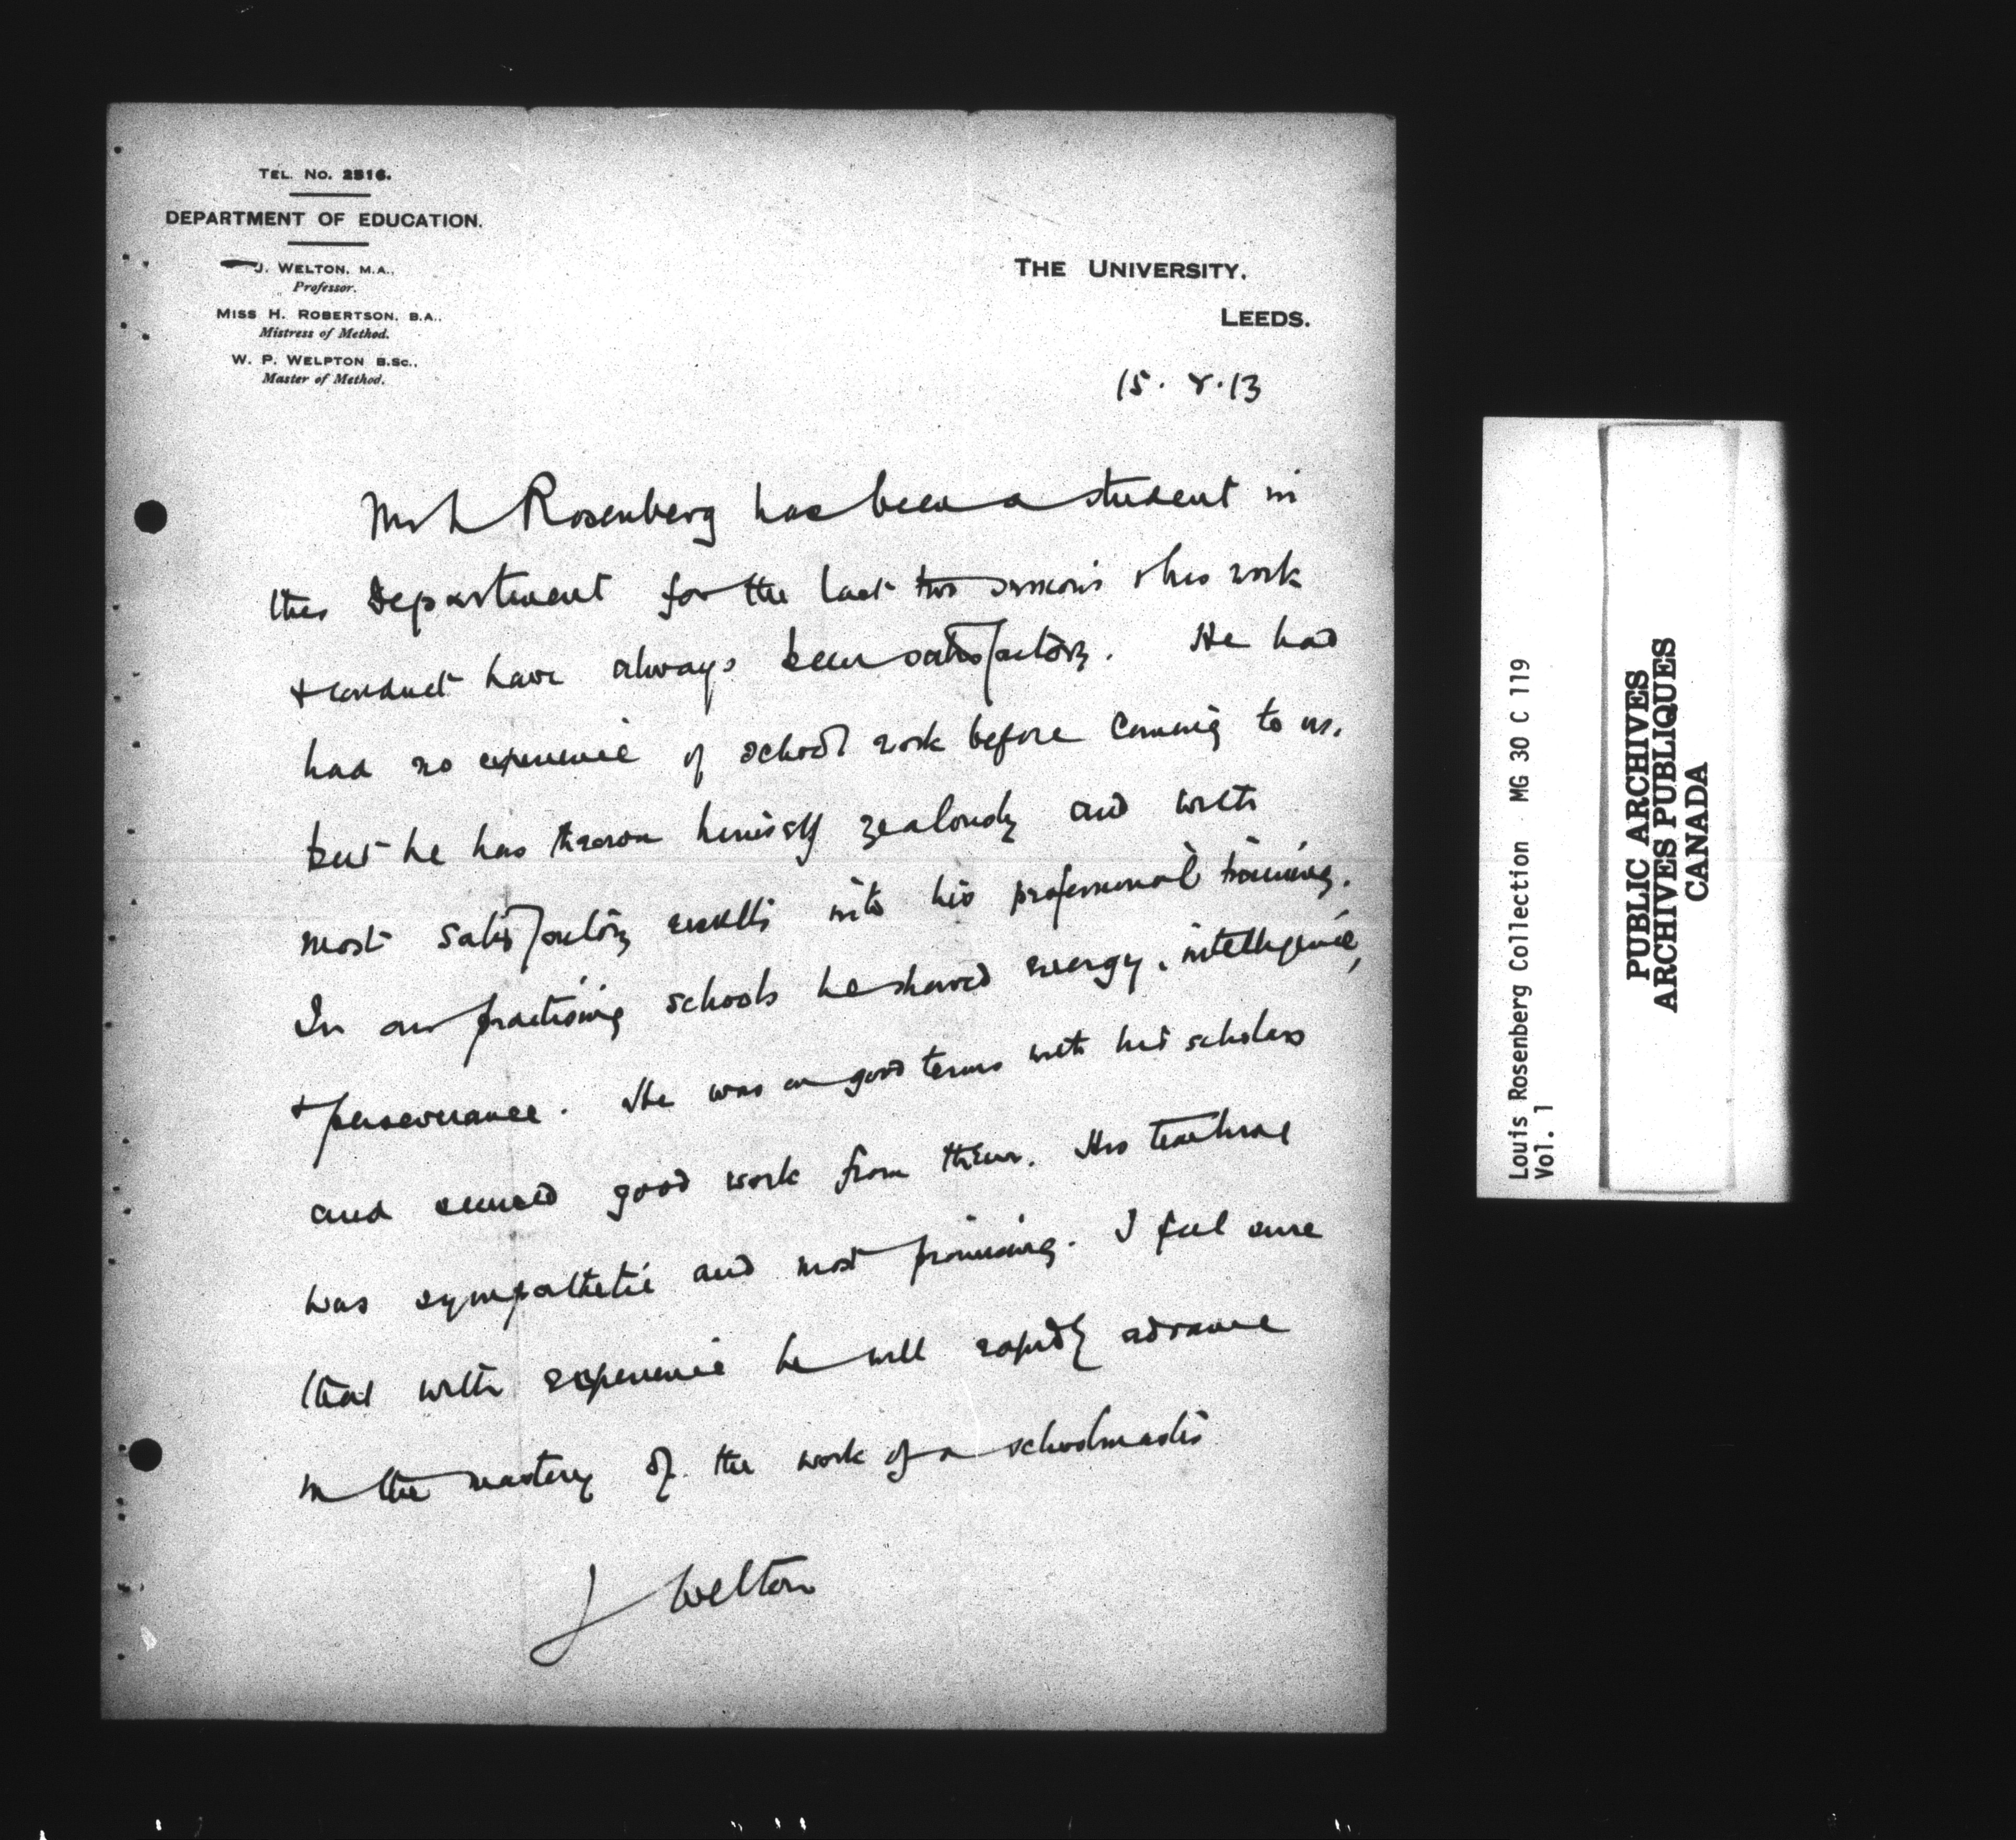 TEL. No. 2516.
DEPARTMENT OF EDUCATION.
J. WELTON, M.A.,
Professor.
MISS H. ROBERTSON, B.A.,
Mistress of Method.
W. P. WELPTON B.Sc.,
Master of Method.
THE UNIVERSITY,
LEEDS.
15. 8. 13
Mr L Rosenberg has been a student in
this Department for the last two sessions & his work
& conduct have always been satisfactory. He had
had no experience of school work before coming to us,
but he has thrown himself zealously and with
most satisfactory results into his professional training.
In our practising schools he showed energy, intelligence,
& perseverance. He was on good terms with his scholars
and secured good work from them. His teaching
was sympathetic and most promising. I feel sure
that with experience he will rapidly advance
in the mastery of the work of a schoolmaster
J Welton
Louis Rosenberg Collection MG 30 C 119
Vol. 1
PUBLIC ARCHIVES
ARCHIVES PUBLIQUES
CANADA